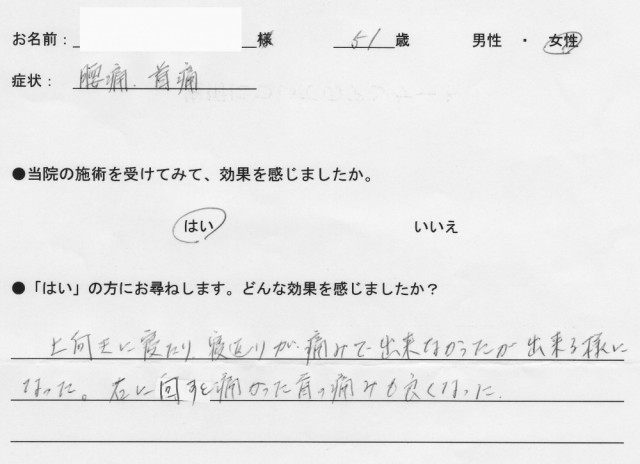 お名前： 様 51歳 男性 ・ 女性
症状： 腰痛、首痛
●当院の施術を受けてみて、効果を感じましたか。
はい いいえ
●「はい」の方にお尋ねします。どんな効果を感じましたか？
上向きに寝たり、寝返りが痛みで出来なかったが出来る様に
なった。右に回すと痛かった首の痛みも良くなった。